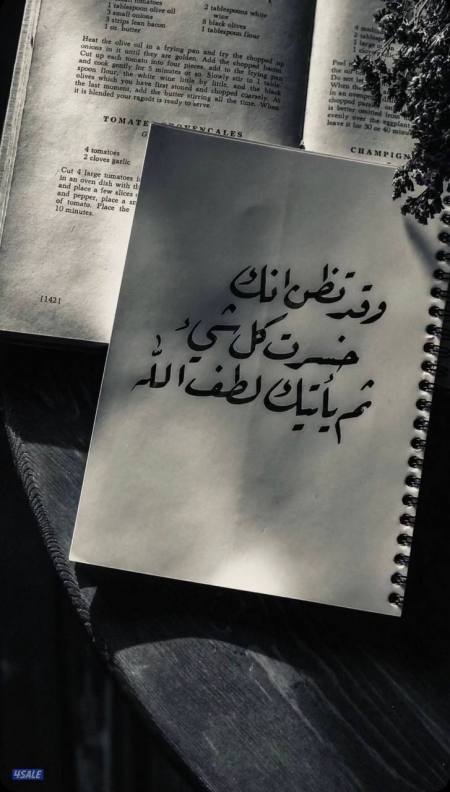 1 tablespoon olive oil
3 small onions
3 strips lean bacon
1 oz. butter
2 tablespoons white
wine
8 black olives
1 tablespoon flour
Heat the olive oil in a frying pan and fry the chopped
onions in it until they are golden. Add the chopped bacon.
Cut up each tomato into four pieces, add to the frying pan
and cook gently for 5 minutes or so. Slowly stir in 1 table-
spoon flour, the white wine little by little, and the black
olives which you have first stoned and chopped coarsely. At
the last moment, add the butter stirring all the time. When
it is blended your ragoût is ready to serve.
4 tomatoes
2 cloves garlic
Cut 4 large tomatoes
in an oven dish with
and place a few slices
and pepper, place a
of tomato. Place the
10 minutes.
[142]
CHAMPIGN
وقد تظن انك
خسرت كل شيء
ثم يأتيك لطف الله
4SALE